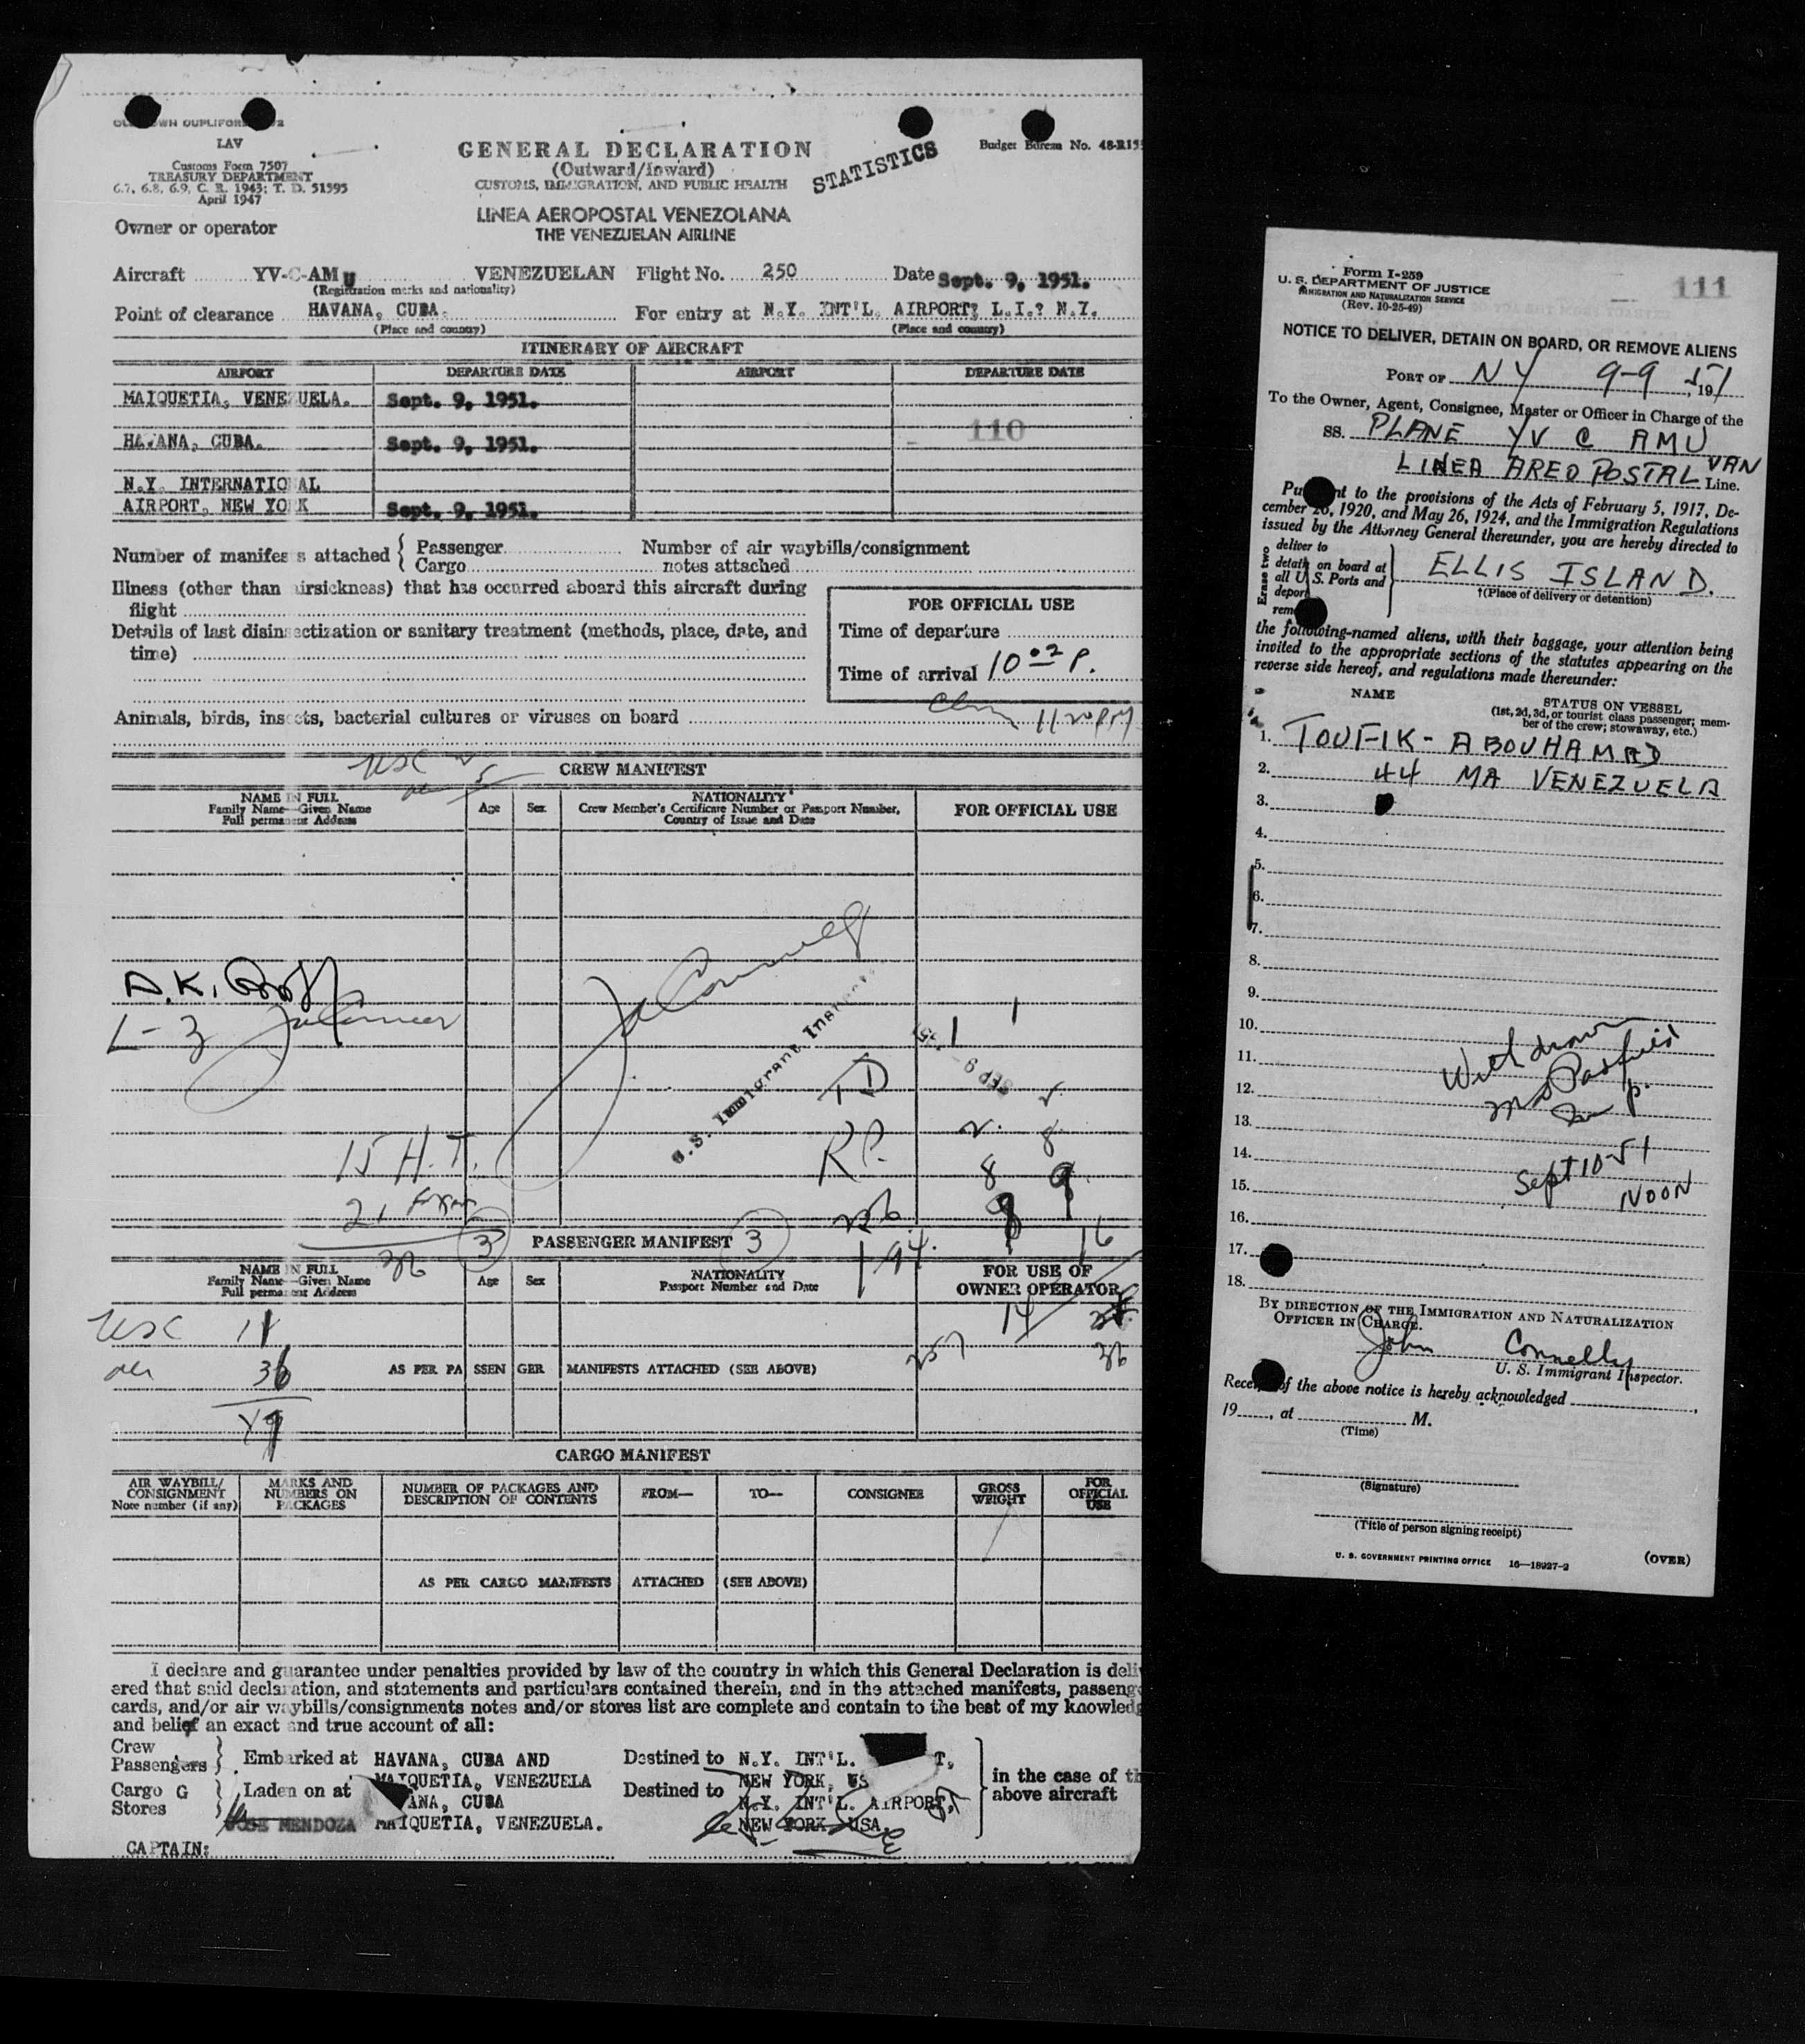 LAV
Customs Form 7507
TREASURY DEPARTMENT
6.7, 6.8, 6.9, C. R. 1943; T. D. 51595
April 1947
GENERAL DECLARATION
(Outward/inward)
CUSTOMS, IMMIGRATION, AND PUBLIC HEALTH
STATISTICS
Budget Bureau No. 48-R15
LINEA AEROPOSTAL VENEZOLANA
THE VENEZUELAN AIRLINE
Owner or operator
Aircraft YV-C-AMU VENEZUELAN Flight No. 250 Date Sept. 9, 1951.
(Registration marks and nationality)
Point of clearance HAVANA, CUBA. For entry at N.Y. INT'L. AIRPORT? L.I.? N.Y.
(Place and country) (Place and country)
ITINERARY OF AIRCRAFT
AIRPORT DEPARTURE DATE AIRPORT DEPARTURE DATE
MAIQUETIA, VENEZUELA. Sept. 9, 1951.
110
HAVANA, CUBA. Sept. 9, 1951.
N.Y. INTERNATIONAL
AIRPORT, NEW YORK Sept. 9, 1951.
Number of manifes s attached { Passenger Number of air waybills/consignment
Cargo notes attached
Illness (other than airsickness) that has occurred aboard this aircraft during
flight
Details of last disinsectization or sanitary treatment (methods, place, date, and
time)
FOR OFFICIAL USE
Time of departure
Time of arrival 10 02 P.
Animals, birds, insects, bacterial cultures or viruses on board
CREW MANIFEST
NAME IN FULL
Family Name—Given Name
Full permanent Address
Age Sex
NATIONALITY
Crew Member's Certificate Number or Passport Number,
Country of Issue and Date
FOR OFFICIAL USE
A.K.
L-3
U.S. Immigrant
15 H.T.
PASSENGER MANIFEST 3
NAME IN FULL
Family Name—Given Name
Full permanent Address
Age Sex
NATIONALITY
Passport Number and Date
FOR USE OF
OWNER OPERATOR
USC 11
36
AS PER PASSENGER MANIFESTS ATTACHED (SEE ABOVE)
CARGO MANIFEST
AIR WAYBILL/
CONSIGNMENT
Note number (if any)
MARKS AND
NUMBERS ON
PACKAGES
NUMBER OF PACKAGES AND
DESCRIPTION OF CONTENTS
FROM— TO— CONSIGNEE
GROSS
WEIGHT
FOR
OFFICIAL
USE
AS PER CARGO MANIFESTS ATTACHED (SEE ABOVE)
I declare and guarantee under penalties provided by law of the country in which this General Declaration is deliv
ered that said declaration, and statements and particulars contained therein, and in the attached manifests, passenge
cards, and/or air waybills/consignments notes and/or stores list are complete and contain to the best of my knowledg
and belief an exact and true account of all:
Crew
Passengers } Embarked at HAVANA, CUBA AND MAIQUETIA, VENEZUELA
Destined to N.Y. INT'L. T, NEW YORK, US
Cargo G
Stores } Laden on at ANA, CUBA MAIQUETIA, VENEZUELA.
Destined to N.Y. INT'L. AIRPORT, NEW YORK, USA.
in the case of th
above aircraft
JOSE MENDOZA
CAPTAIN:
Form I-259
U. S. DEPARTMENT OF JUSTICE
IMMIGRATION AND NATURALIZATION SERVICE
(Rev. 10-25-49)
111
NOTICE TO DELIVER, DETAIN ON BOARD, OR REMOVE ALIENS
PORT OF NY 9-9, 1951
To the Owner, Agent, Consignee, Master or Officer in Charge of the
SS. PLANE YV C AMU
LINEA AREO POSTAL VAN Line.
Pu nt to the provisions of the Acts of February 5, 1917, De-
cember 26, 1920, and May 26, 1924, and the Immigration Regulations
issued by the Attorney General thereunder, you are hereby directed to
Erase two
deliver to
detain on board at
all U. S. Ports and
deport
rem
ELLIS ISLAND.
†(Place of delivery or detention)
the following-named aliens, with their baggage, your attention being
invited to the appropriate sections of the statutes appearing on the
reverse side hereof, and regulations made thereunder:
NAME
STATUS ON VESSEL
(1st, 2d, 3d, or tourist class passenger; mem-
ber of the crew; stowaway, etc.)
1. TOUFIK - ABOUHAMAD
2. 44 MA VENEZUELA
3.
4.
5.
6.
7.
8.
9.
10.
11.
12.
13.
14.
15.
16.
17.
18.
Withdrawn
Sept 10-51
NOON
BY DIRECTION OF THE IMMIGRATION AND NATURALIZATION
OFFICER IN CHARGE.
John Connelly
U. S. Immigrant Inspector.
Rece of the above notice is hereby acknowledged
19 , at M.
(Time)
(Signature)
(Title of person signing receipt)
U. S. GOVERNMENT PRINTING OFFICE 16—18927-2
(OVER)